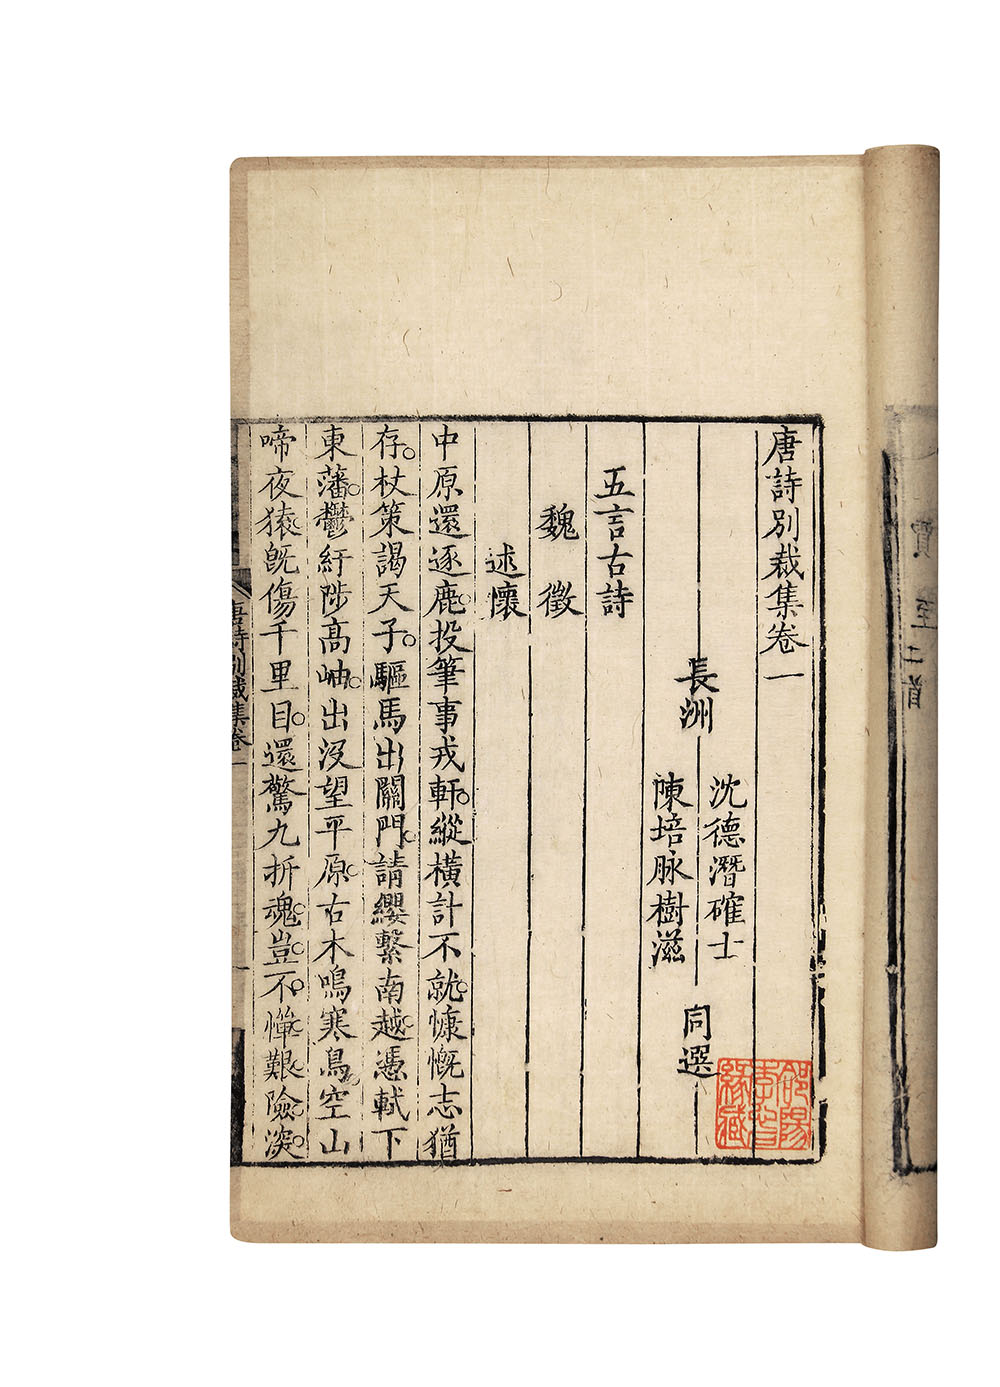 賈至二首
唐詩別裁集卷一
長洲
沈德潛確士
陳培脉樹滋
同選
五言古詩
魏徵
述懷
中原還逐鹿投筆事戎軒縱橫計不就慷慨志猶
存杖策謁天子驅馬出關門請纓繫南越憑軾下
東藩鬱紆陟高岫出沒望平原古木鳴寒鳥空山
啼夜猿旣傷千里目還驚九折魂豈不憚艱險深
唐詩別裁集卷一
郃陽
藏